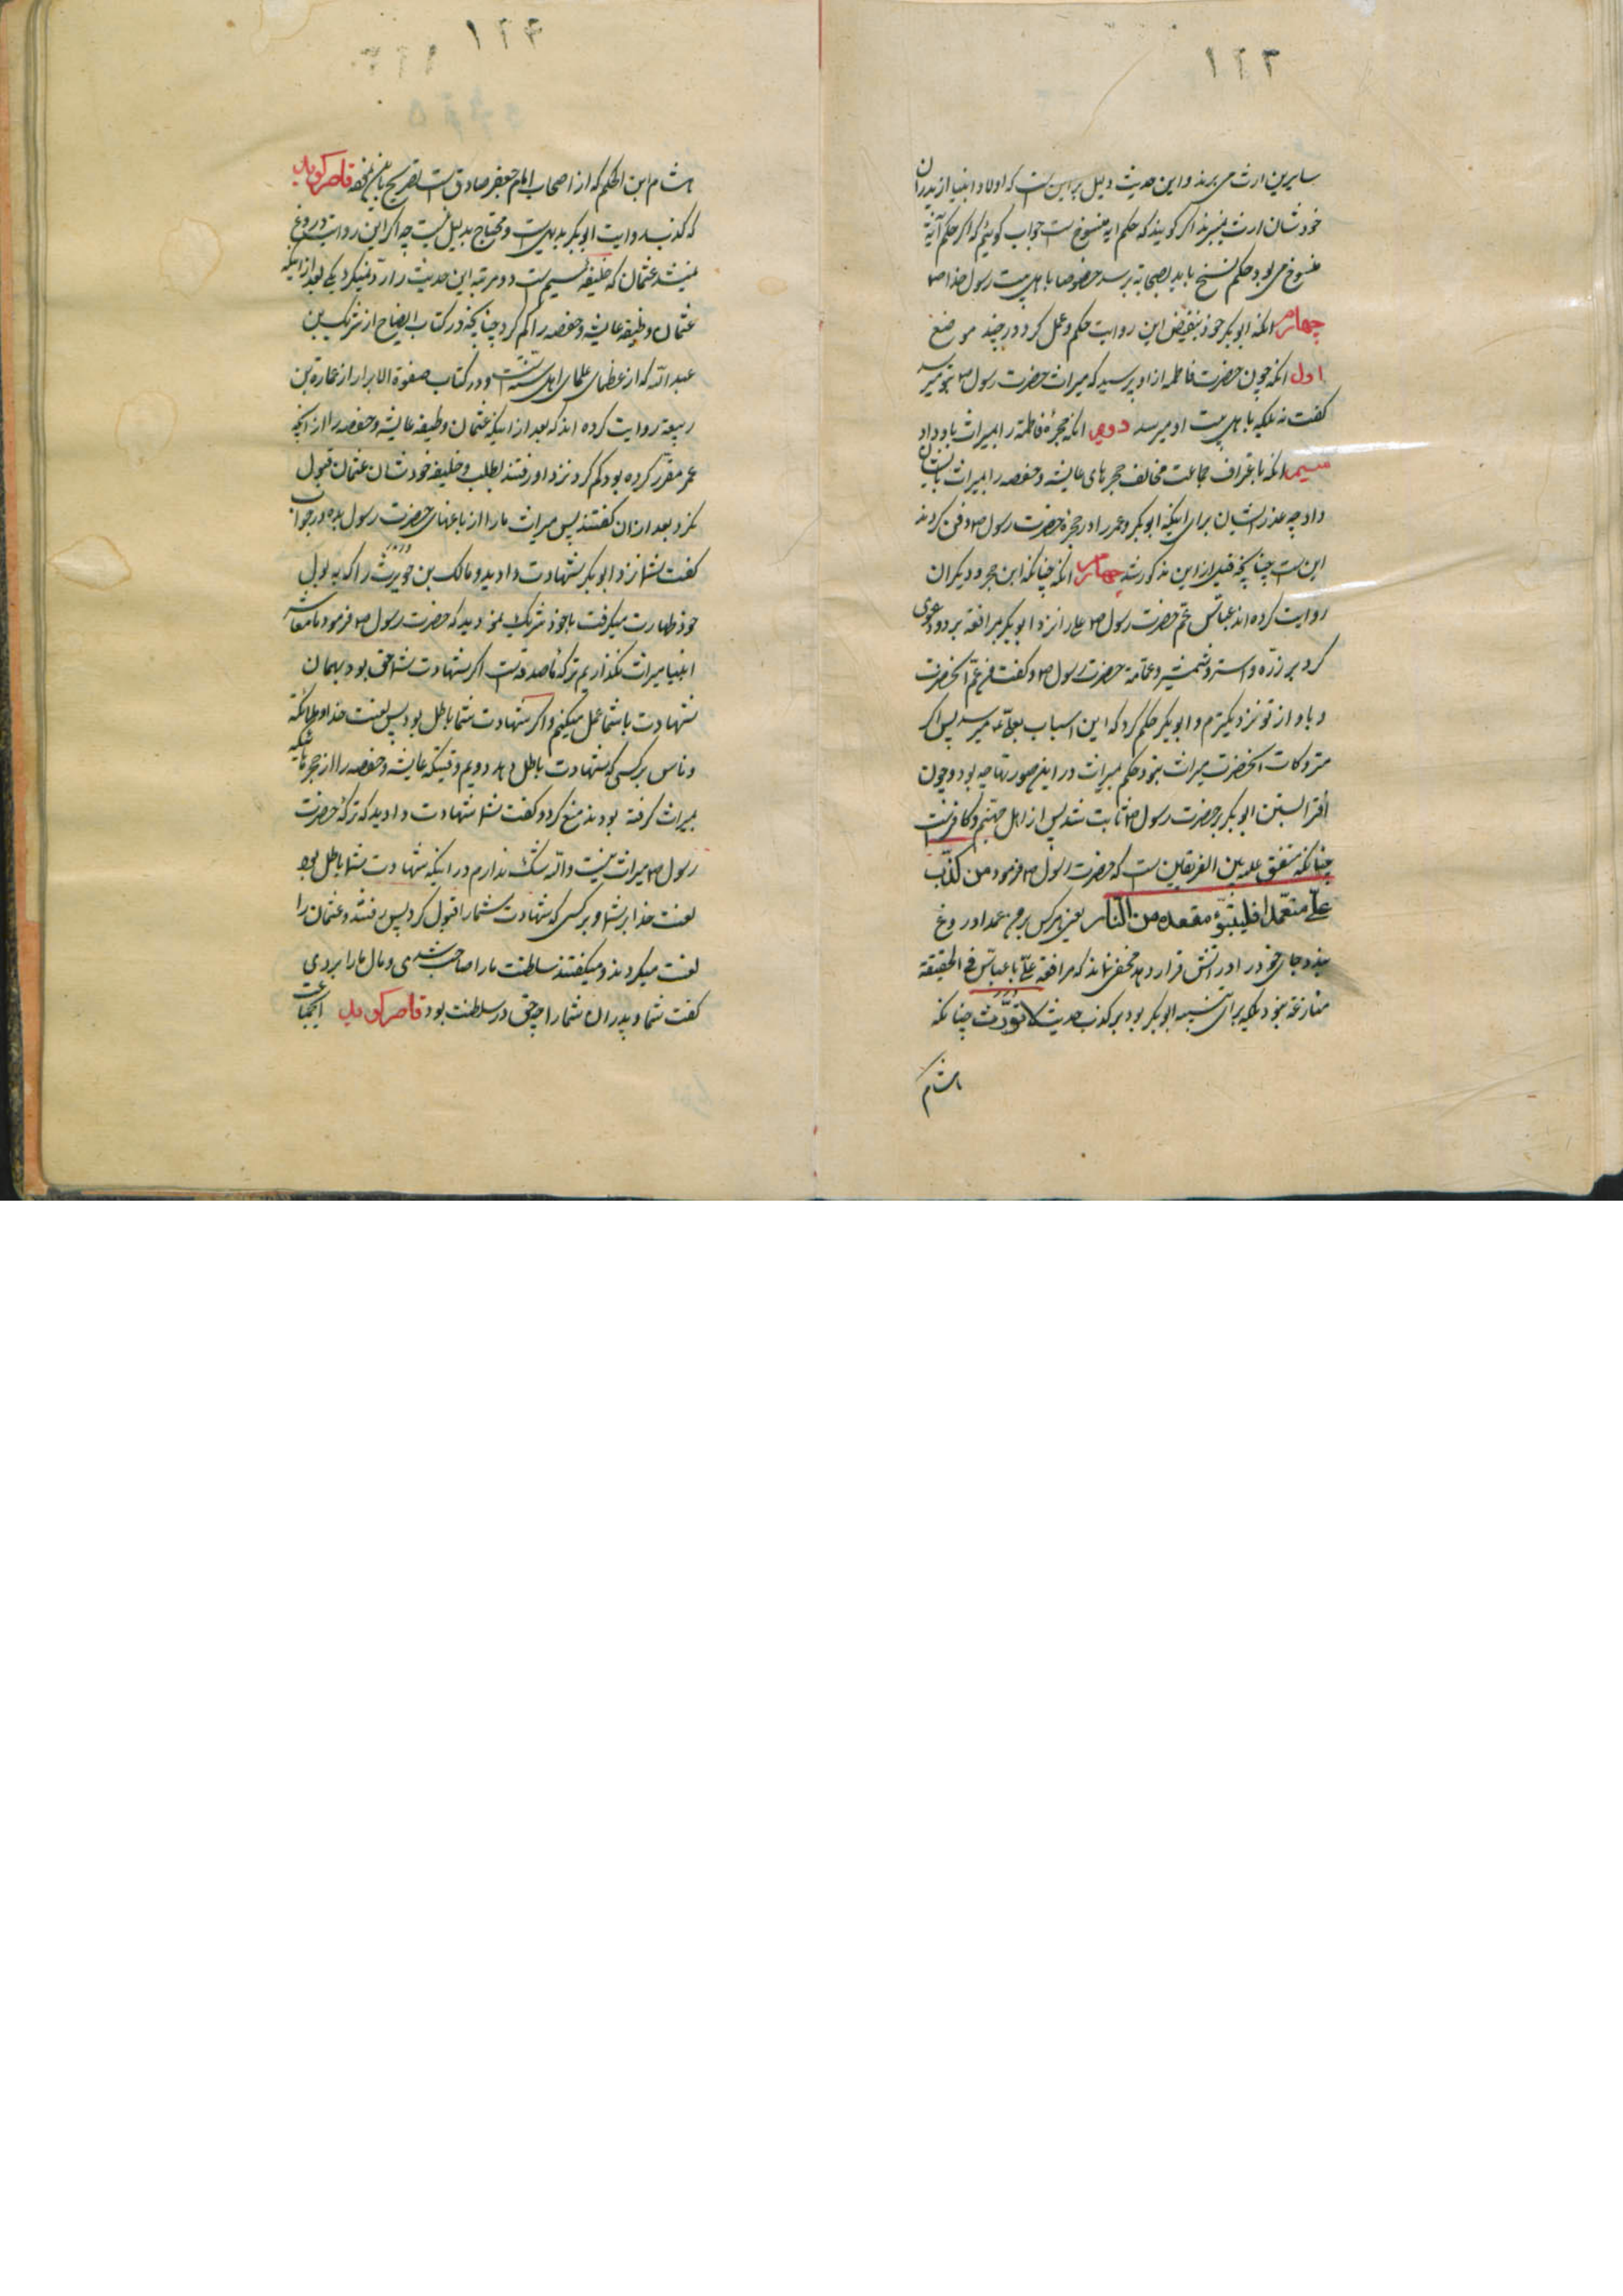 ۱۲۳
سایرین ارث می برند و این حدیث دلیل بر این است که اولاد انبیا از پدران
خودشان ارث میبرند اگر گویند که حکم ایه منسوخ است جواب گوییم که اگر حکم آیة
منسوخ می بود حکم نسخ باید بصحابه برسد خصوصا باهل بیت رسول خدا ص
چهارم انکه ابوبکر خود بنقیض این روایت حکم و عمل کرد در چند موضع
اول انکه چون حضرت فاطمه از او پرسید که میراث حضرت رسول ص بتو میرسد
گفت نه بلکه باهل بیت او میرسد دویم انکه حجرهٔ فاطمه را بمیراث باو داد
سیم انکه باعتراف جماعت مخالف حجرهای عایشه و حفصه را بمیراث بایشان
داد چه عذر ایشان برای اینکه ابوبکر و عمر را در حجره حضرت رسول ص دفن کردند
این است چنانچه قبل از این مذکور شد چهارم انکه چنانکه ابن حجر و دیگران
روایت کرده اند عباس عم حضرت رسول ص علی را نزد ابوبکر بمرافعه برد و دعوی
کرد بر زره و استر و شمشیر و عمامه حضرت رسول ص و گفت من عم انحضرت
و باو از تو نزدیکترم و ابوبکر حکم کرد که این اسباب بعلی ع میرسد پس اگر
متروکات انحضرت میراث نبود حکم میراث در این صورتها چه بود و چون
افترا بستن ابوبکر بر حضرت رسول ص ثابت شد پس از اهل جهنم و کافر است
چنانکه متفق علیه بین الفریقین است که حضرت رسول ص فرمود من کذب
علی متعمدا فلیتبوّء مقعده من النار یعنی هرکس بر من عمدا دروغ
بندد جای خود را در اتش قرار دهد مخفی نماند که مرافعه علی با عباس فی الحقیقة
منازعه نبود بلکه برای تنبیه ابوبکر بود بر کذب حدیث لا نورث چنانکه
هشام
۱۲۴
هشام ابن الحکم که از اصحاب امام جعفر صادق است تصریح باین نموده قاصر کوید
که کذب روایت ابوبکر بدیهی است و محتاج بدلیل نیست چه اگر این روایت دروغ
نمیشد عثمان که خلیفه سیم است دو مرتبه این حدیث را رد نمیکرد یکی بعد از اینکه
عثمان وظیفه عایشه و حفصه را کم کرد چنانچه در کتاب ایضاح از شریک بن
عبد الله که از عظمای علمای اهل سنت است و در کتاب صفوة الابرار از عماره بن
ربیعة روایت کرده اند که بعد از اینکه عثمان وظیفه عایشه و حفصه را از انچه
عمر مقرر کرده بود کم کرد نزد او رفتند بطلب وظیفه خودشان عثمان قبول
نکرد بعد از ان گفتند پس میراث ما را از باغهای حضرت رسول بده در جواب
گفت شما نزد ابوبکر شهادت دادید و مالک بن حویرث را که به بول
خود طهارت میگرفت با خود شریک نمودید که حضرت رسول ص فرمود ما معاشر
انبیا میراث نگذاریم ترکهٔ ما صدقه است اگر شهادت شما حق بود بهمان
شهادت با شما عمل میکنم و اگر شهادت شما باطل بود پس لعنت خدا و ملائکه
و ناس بر کسی که شهادت باطل دهد دویم وقتیکه عایشه و حفصه را از حجرهائیکه
بمیراث گرفته بودند منع کرد و گفت شما شهادت دادید که ترکهٔ حضرت
رسول ص میراث نیست والله شک ندارم در اینکه شهادت شما باطل بود
لعنت خدا بر شما و بر کسی که شهادت شما را قبول کرد پس رفتند و عثمان را
لعنت میکردند و میگفتند سلطنت ما را صاحب شدی و مال ما را بردی
گفت شما و پدران شما را چه حق در سلطنت بود قاصر کوید